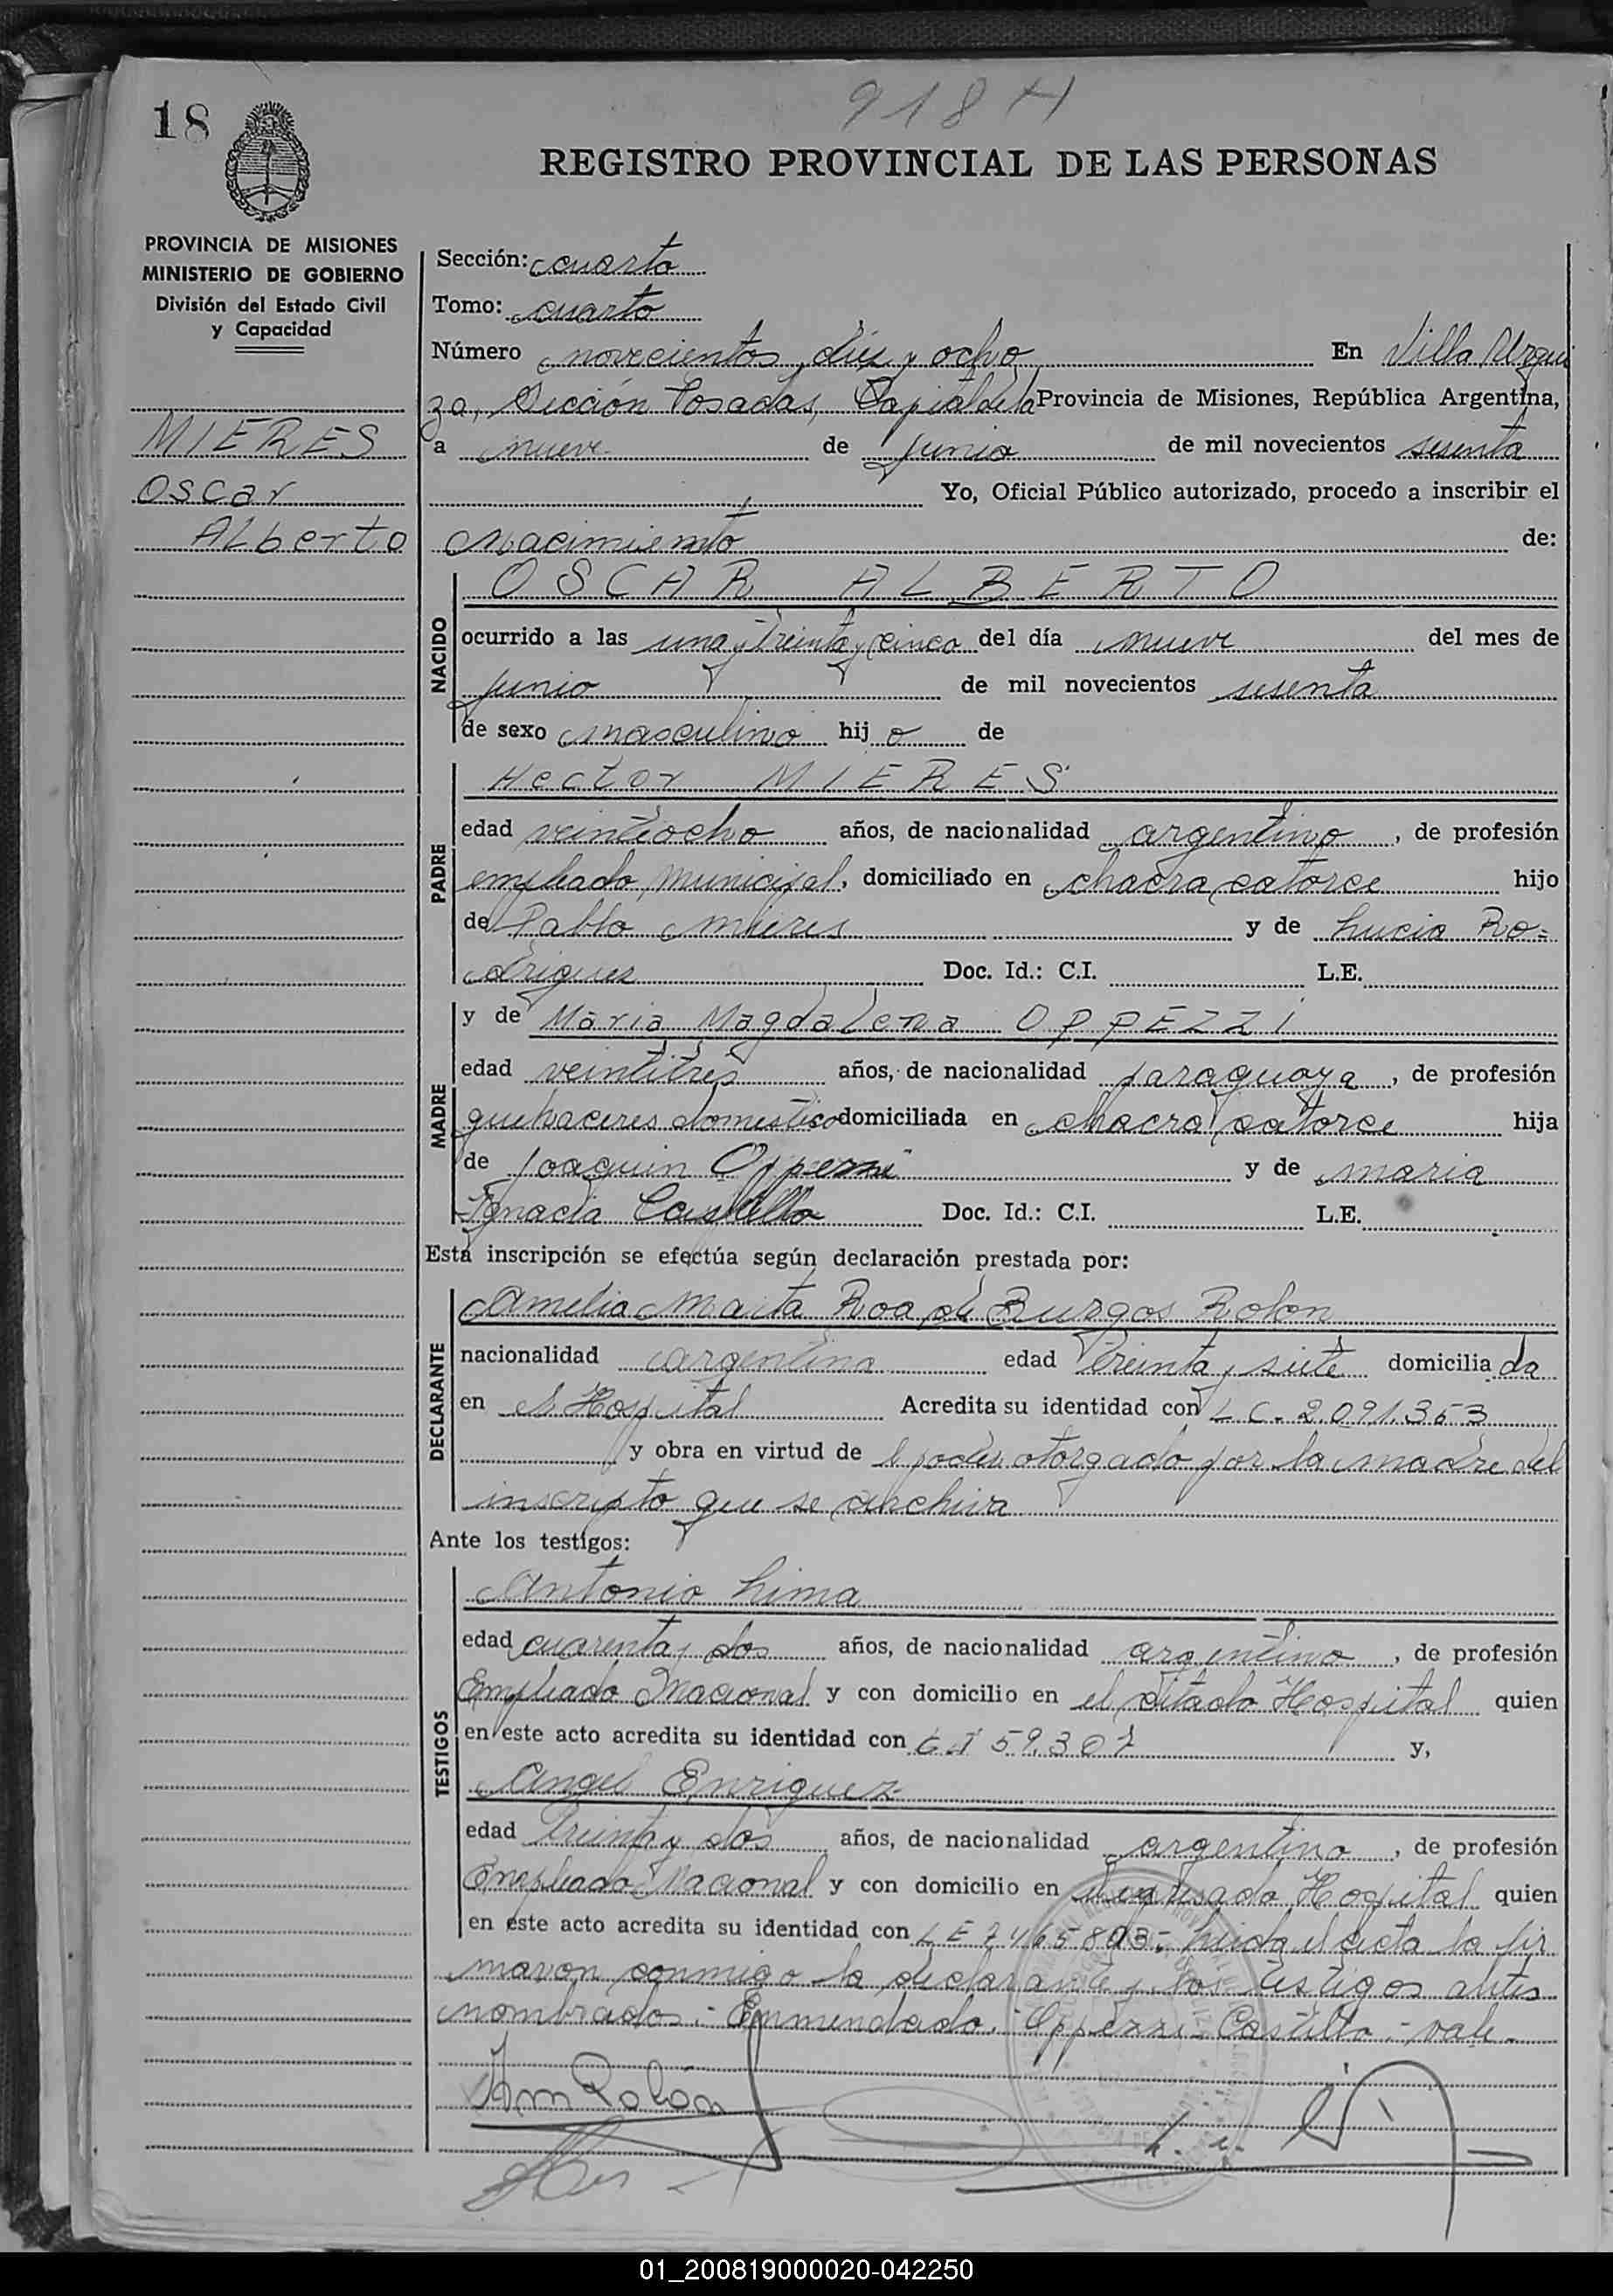 918 H
18
REGISTRO PROVINCIAL DE LAS PERSONAS
PROVINCIA DE MISIONES
MINISTERIO DE GOBIERNO
División del Estado Civil
y Capacidad
MIERES
Oscar
ALberto
Sección: cuarta
Tomo: cuarto
Número novecientos diez y ocho En Villa Urqui
za, Sección Posadas, Capital de la Provincia de Misiones, República Argentina,
a nueve de junio de mil novecientos sesenta
Yo, Oficial Público autorizado, procedo a inscribir el
Nacimiento de:
NACIDO
OSCAR ALBERTO
ocurrido a las una y treinta y cinco del día nueve del mes de
junio de mil novecientos sesenta
de sexo masculino hij o de
PADRE
Hector MIERES
edad veintiocho años, de nacionalidad argentino, de profesión
empleado municipal, domiciliado en chacra catorce hijo
de Pablo Mieres y de Lucia Ro=
drigues Doc. Id.: C.I. L.E.
MADRE
y de Maria Magdalena OPPEZZI
edad veintitres años, de nacionalidad paraguaya, de profesión
quehaceres domestico domiciliada en chacra catorce hija
de Joaquin y de Maria
Ignacia Castillo Doc. Id.: C.I. L.E.
Esta inscripción se efectúa según declaración prestada por:
DECLARANTE
Amelia Marta Roa de Burgos Rolon
nacionalidad argentina edad treinta y siete domicilia da
en el Hospital Acredita su identidad con L C. 2.091.353
y obra en virtud de poder otorgado por la madre del
inscripto que se archiva
Ante los testigos:
TESTIGOS
Antonio Lima
edad cuarenta y dos años, de nacionalidad argentino, de profesión
Empleado Nacional y con domicilio en el citado Hospital quien
en este acto acredita su identidad con 59.307 y,
Angel Enriquez
edad treinta y dos años, de nacionalidad argentino, de profesión
Empleado Nacional y con domicilio en el expresado Hospital quien
en este acto acredita su identidad con L E 7465803- Leida el acta la fir
maron conmigo la declarante y los testigos antes
nombrados.- Enmendado.- Oppezzi- Castillo - vale.-
Am Rolón
01_200819000020-042250